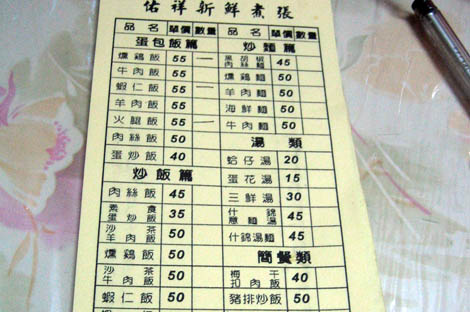 佑祥新鮮煮張
蛋包飯篇 單價 數量
燻鷄飯 55 一
牛肉飯 55
蝦仁飯 55 一
羊肉飯 55
火腿飯 55 一
肉絲飯 50
蛋炒飯 40
炒飯篇
肉絲飯 45
素食蛋炒飯 35
沙茶羊肉飯 50
燻鷄飯 50
沙茶牛肉飯 50
蝦仁飯 50
炒麵篇 單價 數量
黑胡椒肉絲麵 45
燻鷄麵 50
羊肉麵 50
海鮮麵 50
牛肉麵 50
湯類
蛤仔湯 20
蛋花湯 15
三鮮湯 30
什錦意麵湯 45
什錦湯麵 45
簡餐類
梅干扣肉飯 40
豬排炒飯 50